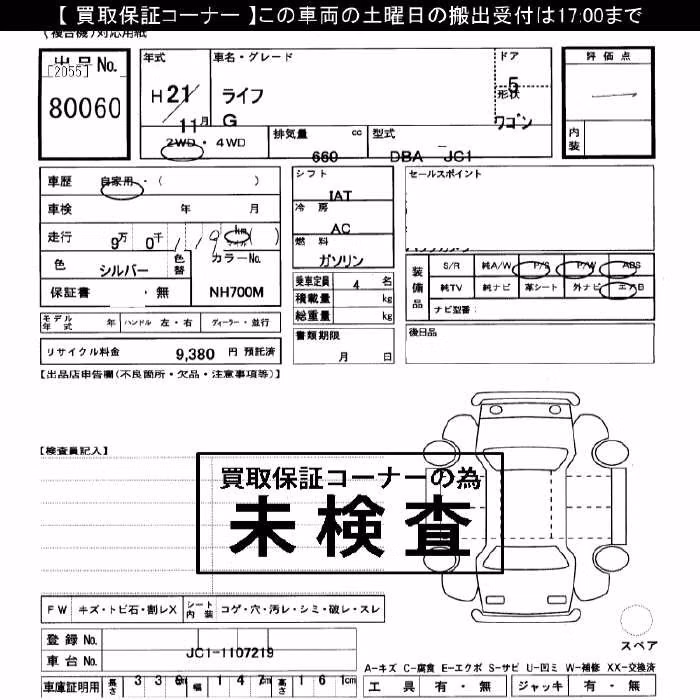 【 買取保証コーナー 】この車両の土曜日の搬出受付は17:00まで
(複合機)対応用紙
出品No.
[2055]
80060
年式
H 21/11月
車名・グレード
ライフ
G
ドア
5
形状
ワゴン
評価点
内装
2WD ・ 4WD
排気量 cc
660
型式
DBA JC1
車歴 自家用 ・ ( )
車検 年 月
走行 9万 0千 119 km マイル ( )
色 シルバー
色替
カラーNo.
NH700M
保証書 ・ 無
シフト
IAT
冷房
AC
燃料
ガソリン
乗車定員 4 名
積載量 kg
総重量 kg
セールスポイント
装備品
S/R 純A/W P/S P/W ABS
純TV 純ナビ 革シート 外ナビ エアB
ナビ型番:
モデル年式 年 ハンドル 左・右 ディーラー・並行
リサイクル料金 9,380 円 預託済
書類期限
月 日
後日品
【出品店申告欄(不良箇所・欠品・注意事項等)】
【検査員記入】
買取保証コーナーの為
未検査
FW キズ・トビ石・割レX
シート内装 コゲ・穴・汚レ・シミ・破レ・スレ
登録No.
車台No. JC1-1107219
車庫証明用 長さ 339cm 幅 147cm 高さ 161cm
スペア
A-キズ C-腐食 E-エクボ S-サビ U-凹ミ W-補修 XX-交換済
工具 有・無 ジャッキ 有・無